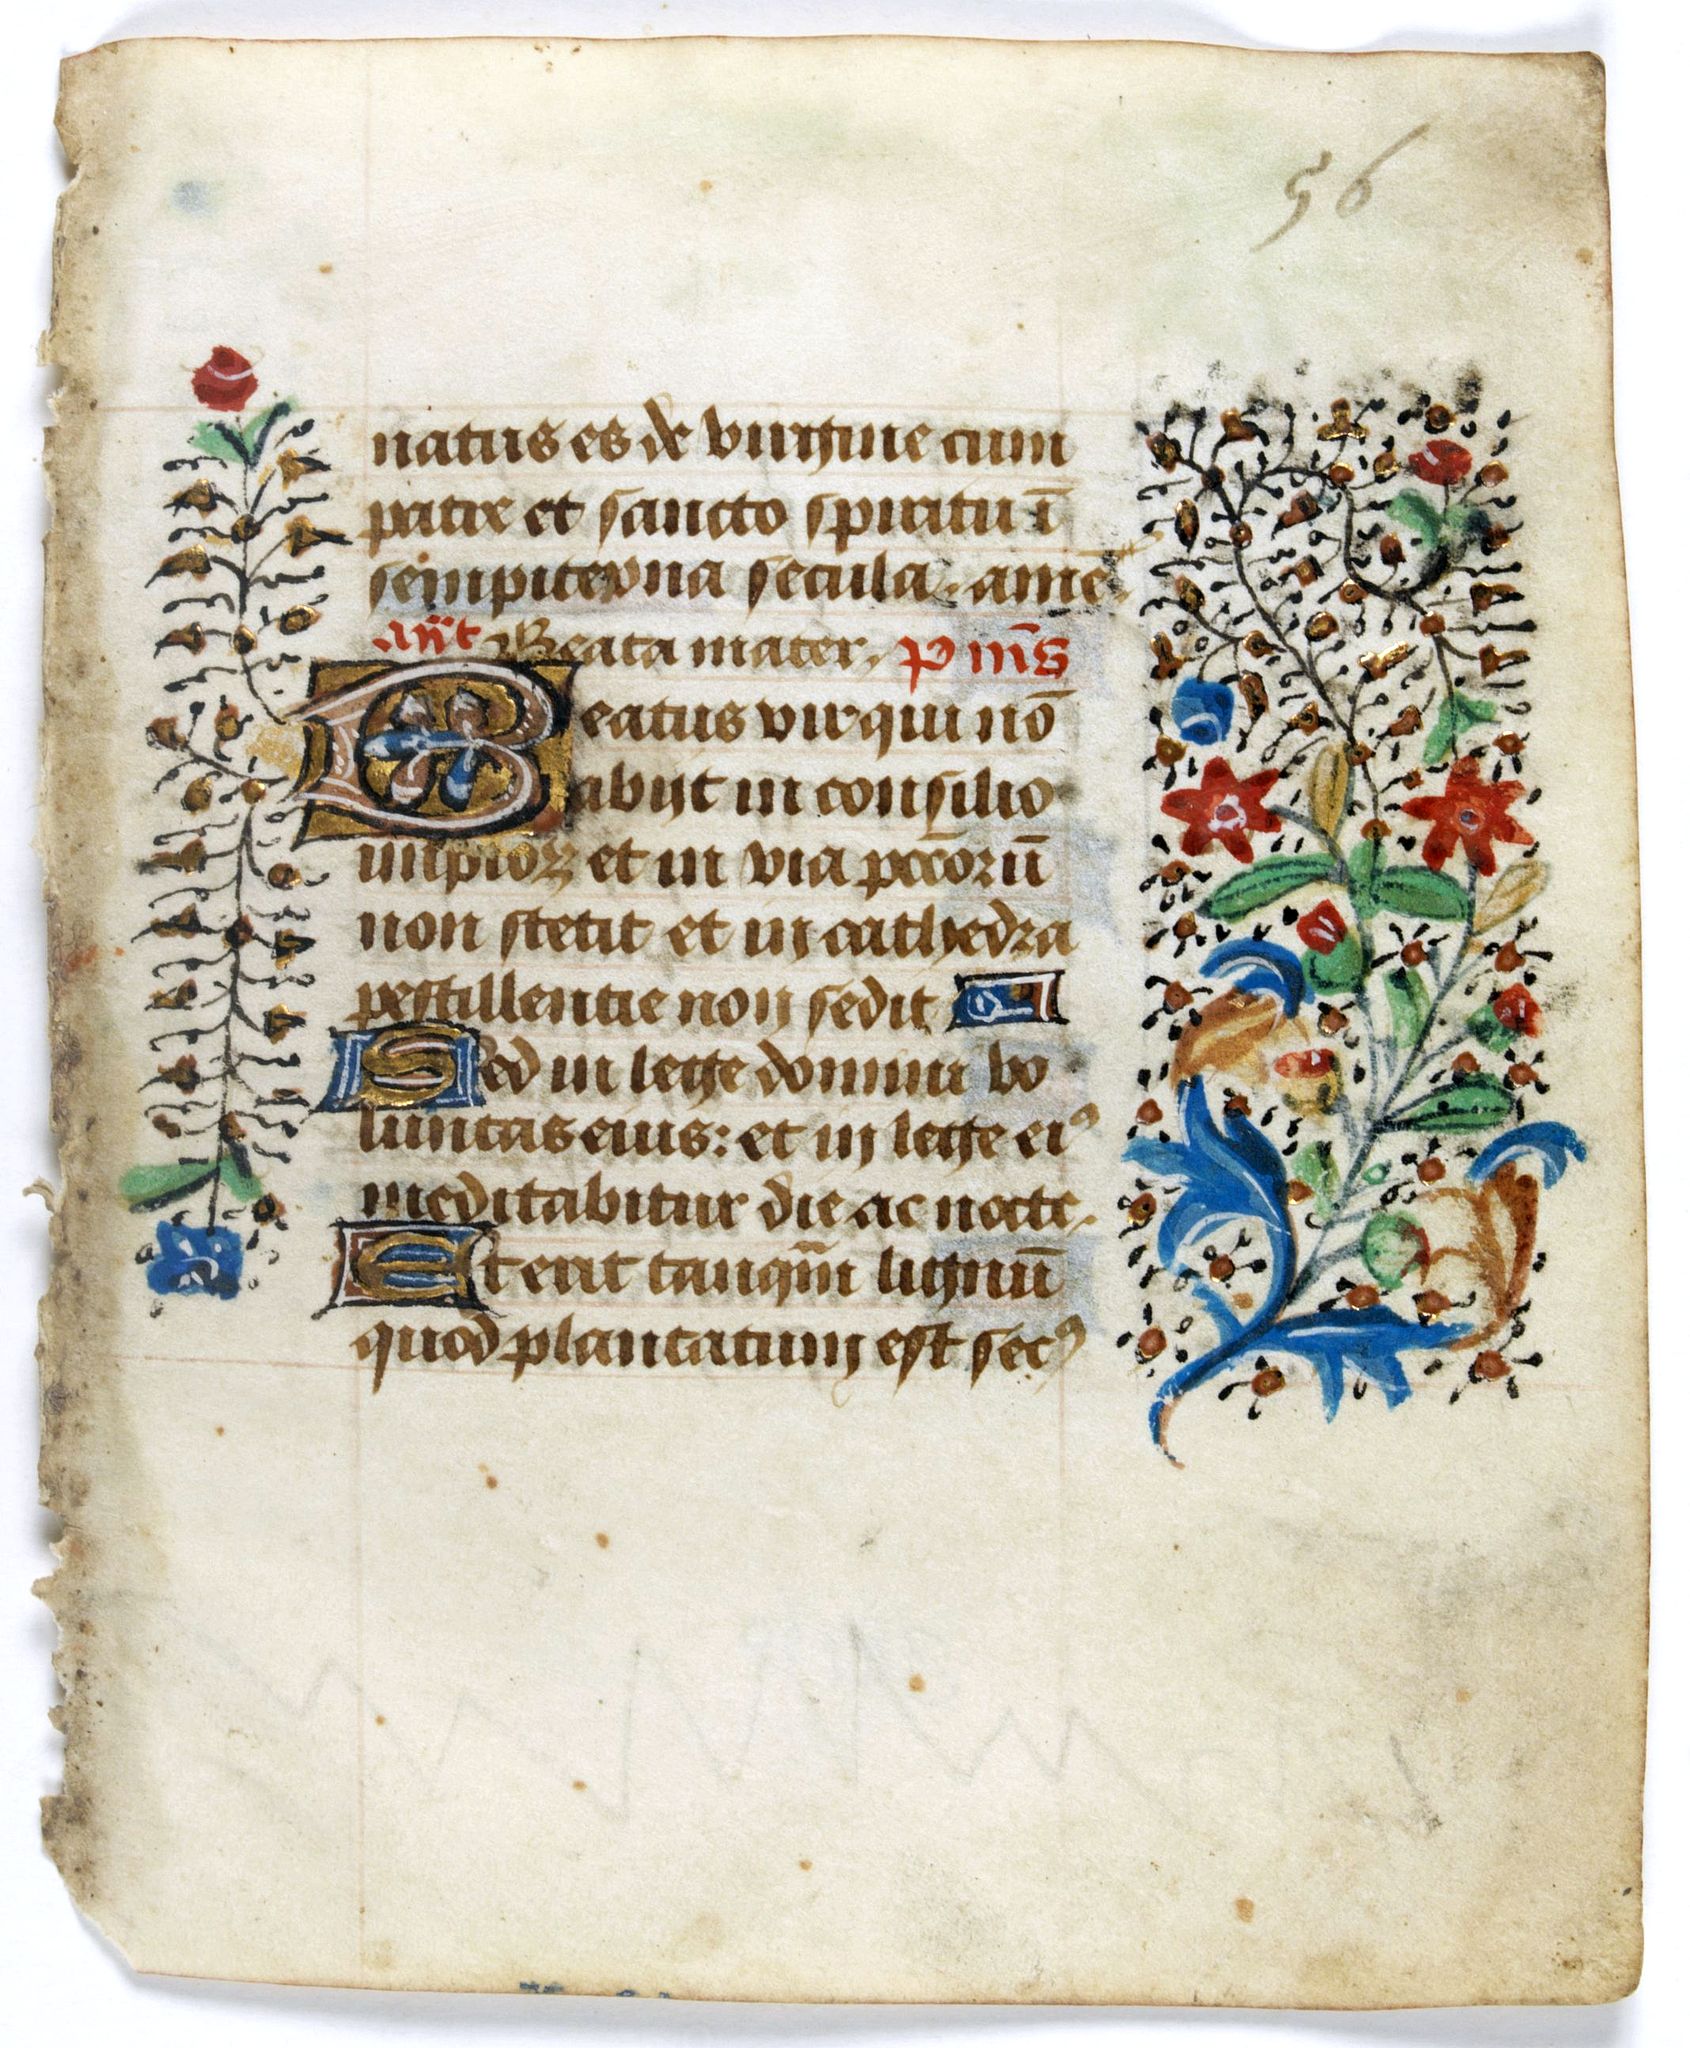 56
natus es de virgine cum
patre et sancto spiritu ī
sempiterna secula. amē.
añt Beata mater. p̄ m̄s
Beatus vir qui nō
abijt in consilio
impioꝝ et in via pccōrū
non stetit et in cathedra
pestillentie non sedit
Sed in lege domini vo
luntas eius: et in lege eiꝰ
meditabitur die ac nocte.
Et erit tanqm̄ lignū
quod plantatum est secꝰ